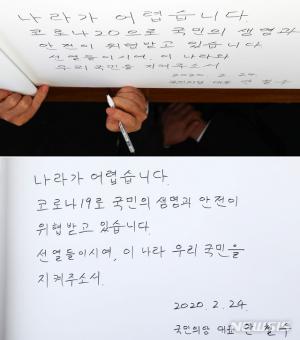 나라가 어렵습니다.
코로나20으로 국민의 생명과
안전이 위협받고 있습니다.
선열들이시여, 이 나라와
우리 국민을 지켜주소서
2020. 2. 24.
국민의당 대표 안철수
나라가 어렵습니다.
코로나19로 국민의 생명과 안전이
위협받고 있습니다.
선열들이시여, 이 나라 우리 국민을
지켜주소서.
2020. 2. 24.
국민의당 대표 안 철 수
NEWSIS